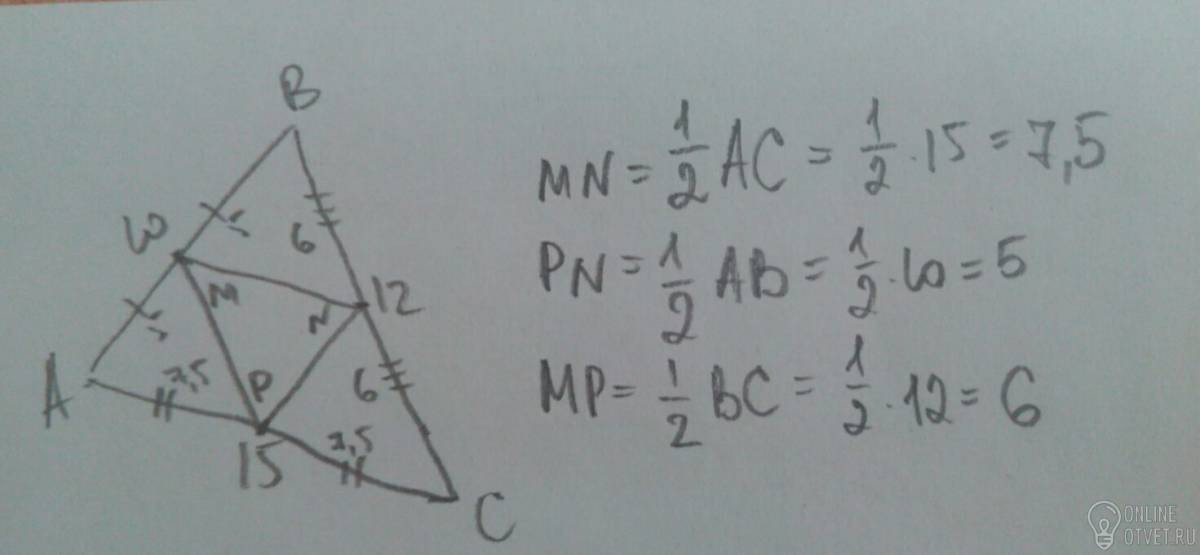 B
10 5 6
M N 12
5
A 7,5 P 6
15 7,5
C
MN = 1/2 AC = 1/2 · 15 = 7,5
PN = 1/2 AB = 1/2 · 10 = 5
MP = 1/2 BC = 1/2 · 12 = 6
ONLINE
OTVET.RU